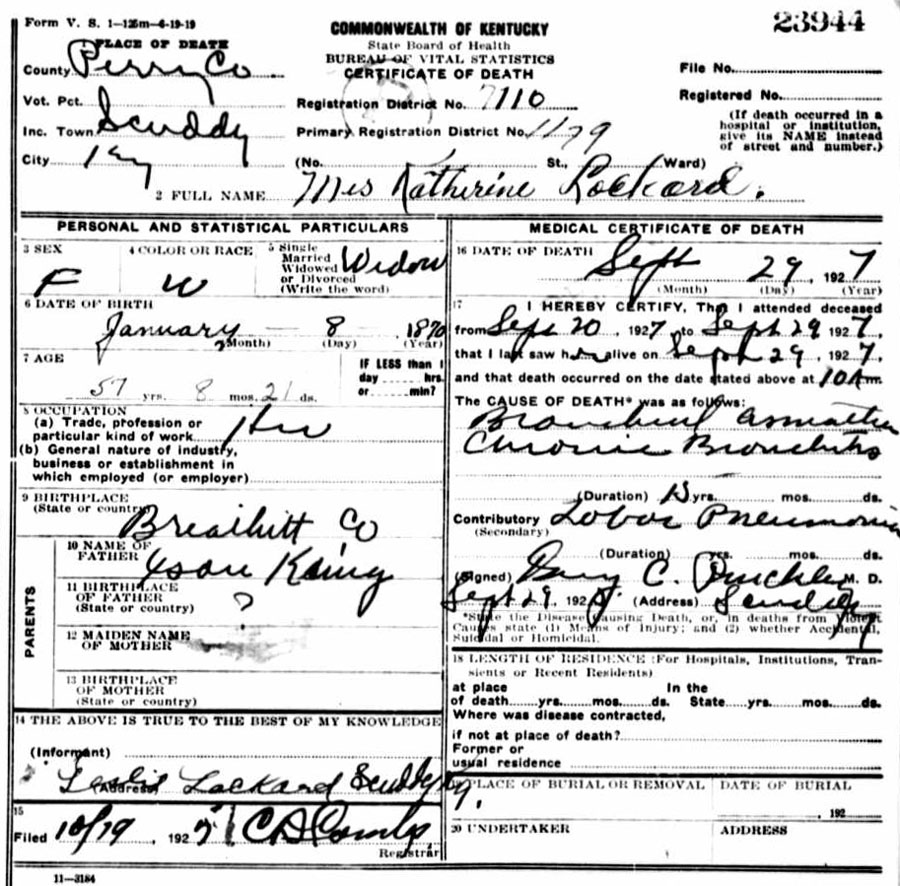 Form V. S. 1—125m—4-19-19
23944
COMMONWEALTH OF KENTUCKY
State Board of Health
BUREAU OF VITAL STATISTICS
CERTIFICATE OF DEATH
1 PLACE OF DEATH
County Perry Co
Vot. Pct.
Inc. Town Scuddy
City Ky
Registration District No. 7110
Primary Registration District No. 1179
(No. St., Ward)
File No.
Registered No.
(If death occurred in a
hospital or institution,
give its NAME instead
of street and number.)
2 FULL NAME Mrs Katherine Lockard.
PERSONAL AND STATISTICAL PARTICULARS
3 SEX
F
4 COLOR OR RACE
W
5 Single
Married
Widowed
or Divorced
(Write the word)
Widow
6 DATE OF BIRTH
January 8 1870
(Month) (Day) (Year)
7 AGE
57 yrs. 8 mos. 21 ds.
IF LESS than 1
day hrs.
or min?
8 OCCUPATION
(a) Trade, profession or
particular kind of work
(b) General nature of industry,
business or establishment in
which employed (or employer)
9 BIRTHPLACE
(State or country)
Breathitt Co
PARENTS
10 NAME OF
FATHER
King
11 BIRTHPLACE
OF FATHER
(State or country)
?
12 MAIDEN NAME
OF MOTHER
13 BIRTHPLACE
OF MOTHER
(State or country)
14 THE ABOVE IS TRUE TO THE BEST OF MY KNOWLEDGE
(Informant)
Leslie Lockard Scuddy Ky.
(Address)
15
Filed 10/19, 1927 C A Combs
Registrar
11—3184
MEDICAL CERTIFICATE OF DEATH
16 DATE OF DEATH
Sept 29, 1927
(Month) (Day) (Year)
17 I HEREBY CERTIFY, That I attended deceased
from Sept 20, 1927, to Sept 29, 1927,
that I last saw her alive on Sept 29, 1927,
and that death occurred on the date stated above at 10 A.m.
The CAUSE OF DEATH* was as follows:
Bronchial Asmatha
Chronic Bronchitis
(Duration) 15 yrs. mos. ds.
Contributory Lobar Pneumonia
(Secondary)
(Duration) yrs. mos. ds.
(Signed) C. M. D.
Sept 29, 192 (Address) Scuddy Ky
*State the Disease Causing Death, or, in deaths from Violent
Causes state (1) Means of Injury; and (2) whether Accidental,
Suicidal or Homicidal.
18 LENGTH OF RESIDENCE (For Hospitals, Institutions, Tran-
sients or Recent Residents)
at place In the
of death yrs. mos. ds. State yrs. mos. ds.
Where was disease contracted,
if not at place of death?
Former or
usual residence
19 PLACE OF BURIAL OR REMOVAL
DATE OF BURIAL
, 192
20 UNDERTAKER
ADDRESS